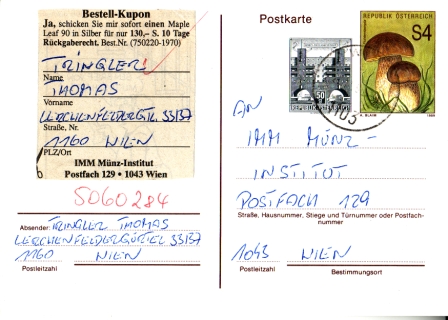 Bestell-Kupon
Ja, schicken Sie mir sofort einen Maple
Leaf 90 in Silber für nur 130,– S. 10 Tage
Rückgaberecht. Best.Nr. (750220-1970)
TRINGLER
Name
THOMAS
Vorname
LERCHENFELDERGÜRTEL 33/37
Straße, Nr.
1160 WIEN
PLZ/Ort
IMM Münz-Institut
Postfach 129 • 1043 Wien
5060284
Absender: TRINGLER THOMAS
LERCHENFELDERGÜRTEL 33/37
1160 WIEN
Postleitzahl
Postkarte
REPUBLIK ÖSTERREICH
S4
50
AN
IMM MÜNZ-
INSTITUT
POSTFACH 129
Straße, Hausnummer, Stiege und Türnummer oder Postfach-
nummer
1043 WIEN
Postleitzahl Bestimmungsort